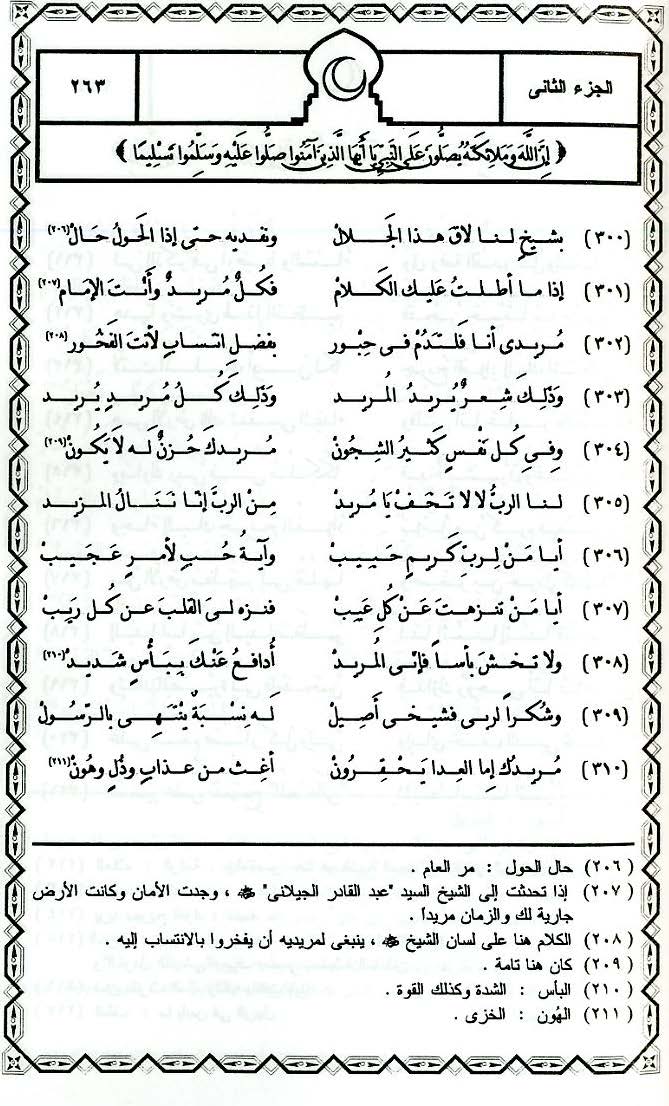 الجزء الثانى
٢٦٣
﴿ إِنَّ اللَّهَ وَمَلَائِكَتَهُ يُصَلُّونَ عَلَى النَّبِيِّ يَا أَيُّهَا الَّذِينَ آمَنُوا صَلُّوا عَلَيْهِ وَسَلِّمُوا تَسْلِيمًا ﴾
(٣٠٠) بشيخٍ لنـا لاق هـذا الجَـلالْ ونفديه حتى إذا الحَولُ حَالْ(٢٠٦)
(٣٠١) إذا ما أطلـتُ عليك الكَـلامْ فكُلٌّ مُـريـدٌ وأَنْـتَ الإِمَـام(٢٠٧)
(٣٠٢) مُـريدى أنـا فَلتَدُمْ فى حِبُور بفضلِ انتسابٍ لأنتَ الفَخُور(٢٠٨)
(٣٠٣) وَذَلِـك شعـرٌ يُـرِيـدُ المُـريـد وَذَلِك كُـلُّ مُـريـدٍ يُـريـد
(٣٠٤) وفى كـل نفـسٍ كَثِيـرُ الشِجُونْ مُـريـدك حُزنٌ لـه لا يَكونْ(٢٠٩)
(٣٠٥) لـنـا الربُّ لا لا تَـخَـفْ يَا مُـريدْ مِـنْ الربِّ إنّـا نَـنَـالُ المـزيـد
(٣٠٦) أيـا مَـنْ لِـربٍّ كَـريـمٍ حَـبِـيـبْ وآيـةُ حُـبٍ لأمـرٍ عَـجَـيـبْ
(٣٠٧) أيـا مَـنْ تنـزهـتَ عَـنْ كُلِ عَيبْ فنزه لـىَ القلبَ عـن كُـل رَيبْ
(٣٠٨) ولا تـخـشَ بأسا فإنّى المُـريـدْ أُدافـعُ عَنْـك بِبـأسٍ شَديـدْ(٢١٠)
(٣٠٩) وشُكرا لربى فشيخـى أَصِيلْ لـه نِسْبَـةٌ يَنْتَـهِـى بالـرّسُولْ
(٣١٠) مُـرِيدُك إما العِـدا يَـحْـقِـرُونْ أغِـث مـن عـذابٍ وذُلٍ وهُونْ(٢١١)
(٢٠٦) حال الحول : مر العام .
(٢٠٧) إذا تحدثت إلى الشيخ السيد "عبد القادر الجيلانى" ﷺ ، وجدت الأمان وكانت الأرض
جارية لك والزمان مريداً .
(٢٠٨) الكلام هنا على لسان الشيخ ﷺ ، ينبغى لمريديه أن يفخروا بالانتساب إليه .
(٢٠٩) كان هنا تامة .
(٢١٠) البأس : الشدة وكذلك القوة .
(٢١١) الهُون : الخزى .